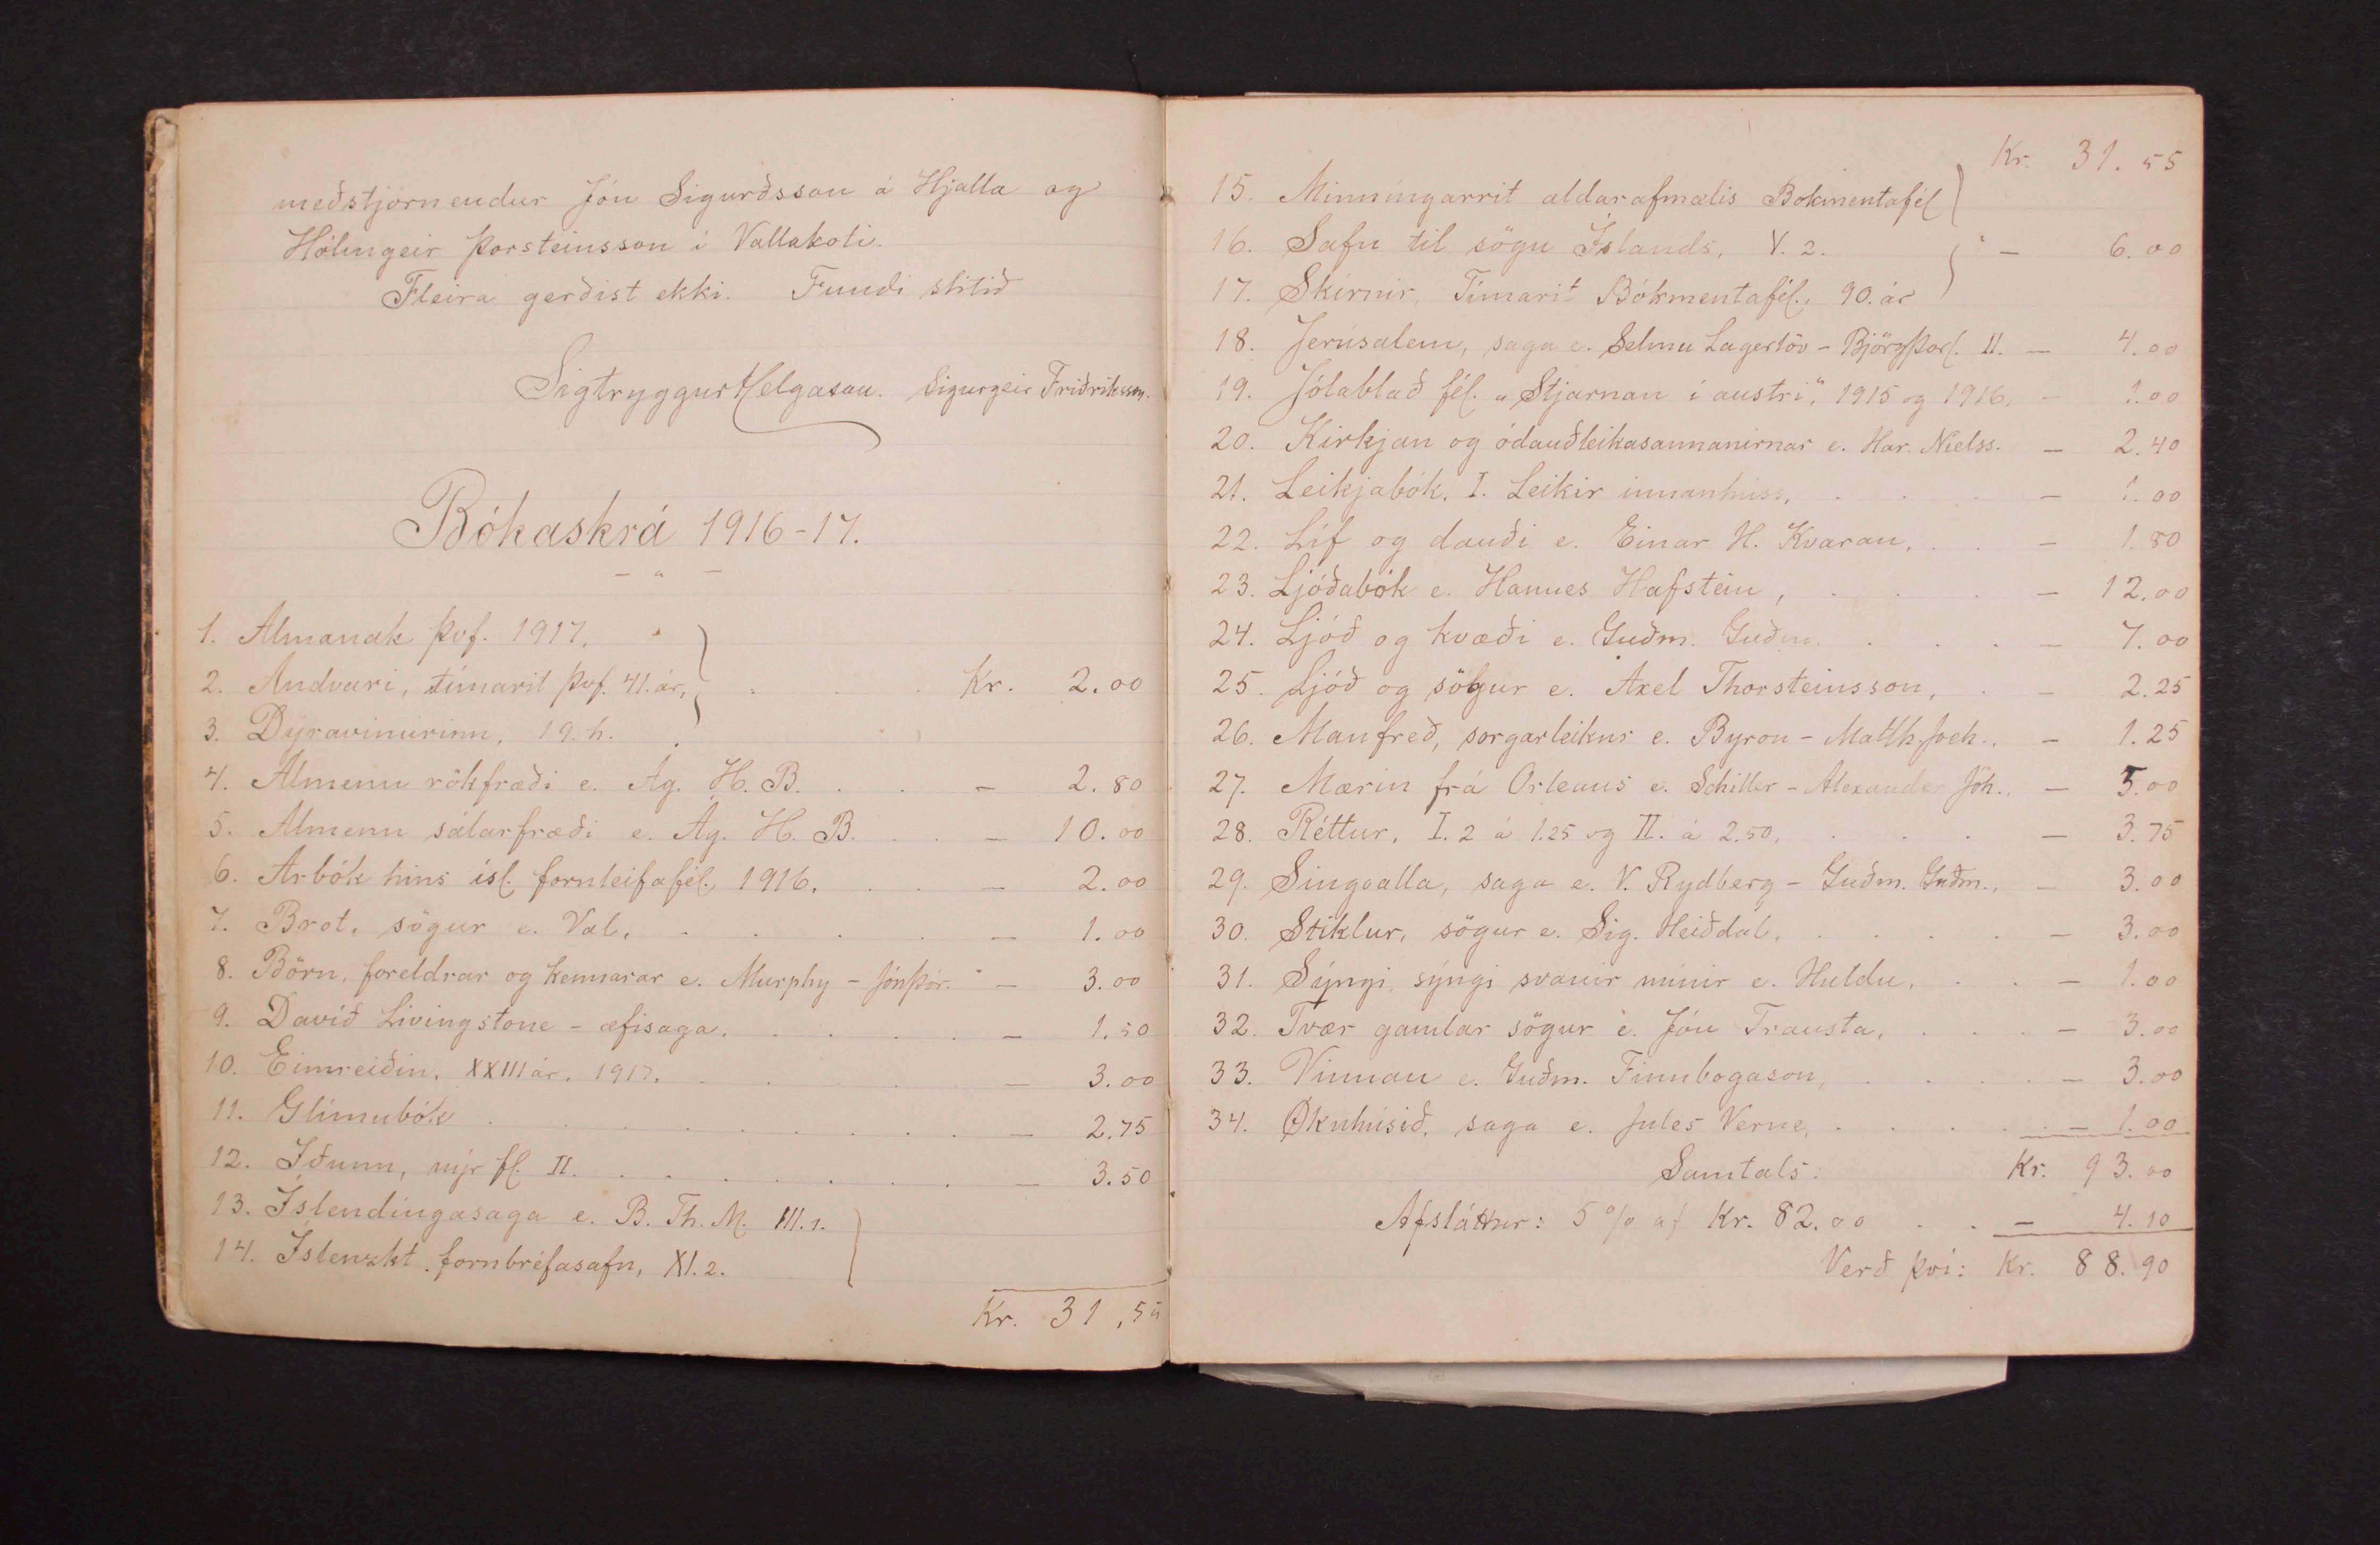 meðstjórnendur Jón Sigurðsson á Hjalla og
Hólmgeir Þorsteinsson í Vallakoti.
Fleira gerðist ekki. Fundi slitið
Sigtryggur Helgason. Sigurgeir Friðriksson.
Bókaskrá 1916-17.
1. Almanak Þvf. 1917.
2. Andvari, tímarit Þvf. 41. ár, . . . Kr. 2.00
3. Dýravinurinn, 19. h.
4. Almenn rökfræði e. Ág. H. B. . . - 2.80
5. Almenn sálarfræði e. Ág. H. B. . . - 10.00
6. Árbók hins ísl. fornleifafél., 1916. . . - 2.00
7. Brot, sögur e. Val. . . . . - 1.00
8. Börn, foreldrar og kennarar e. Murphy - Jón Þór. - 3.00
9. Davíð Livingstone - æfisaga. . . . . - 1.50
10. Eimreiðin, XXIII ár. 1917. . . . - 3.00
11. Glímubók . . . . . . . - 2.75
12. Iðunn, nýr fl. II. . . . . . . - 3.50
13. Íslendingasaga e. B. Th. M. III.1.
14. Íslenzkt fornbréfasafn, XI.2.
Kr. 31,55
Kr. 31.55
15. Minningarrit aldarafmælis Bókmentafél
16. Safn til sögu Íslands, V. 2. - 6.00
17. Skírnir, Tímarit Bókmentafél., 90. ár
18. Jerúsalem, saga e. Selmu Lagerlöv - Björg Þorl. II. - 4.00
19. Jólablað fél. „Stjarnan í austri", 1915 og 1916, - 1.00
20. Kirkjan og ódauðleikasannanirnar e. Har. Níelss. - 2.40
21. Leikjabók. I. Leikir innanhúss, . . . - 1.00
22. Líf og dauði e. Einar H. Kvaran, . . - 1.80
23. Ljóðabók e. Hannes Hafstein, . . . - 12.00
24. Ljóð og kvæði e. Guðm. Guðm. . . . - 7.00
25. Ljóð og sögur e. Axel Thorsteinsson, . - 2.25
26. Manfreð, sorgarleikur e. Byron - Matth. Joch.. - 1.25
27. Mærin frá Orleans e. Schiller - Alexander Jóh.. - 5.00
28. Réttur, I. 2 á 1.25 og II. á 2.50, . . . - 3.75
29. Singoalla, saga e. V. Rydberg - Guðm. Guðm., - 3.00
30. Stiklur, sögur e. Sig. Heiðdal, . . . . - 3.00
31. Sýngi, sýngi svanir mínir e. Huldu, . . - 1.00
32. Tvær gamlar sögur e. Jón Trausta, . . . - 3.00
33. Vinnan e. Guðm. Finnbogason, . . . - 3.00
34. Øknhúsið, saga e. Jules Verne, . . . . - 1.00
Samtals: Kr. 93.00
Afsláttur: 5 % af Kr. 82.00 . . - 4.10
Verð því: Kr. 88.90